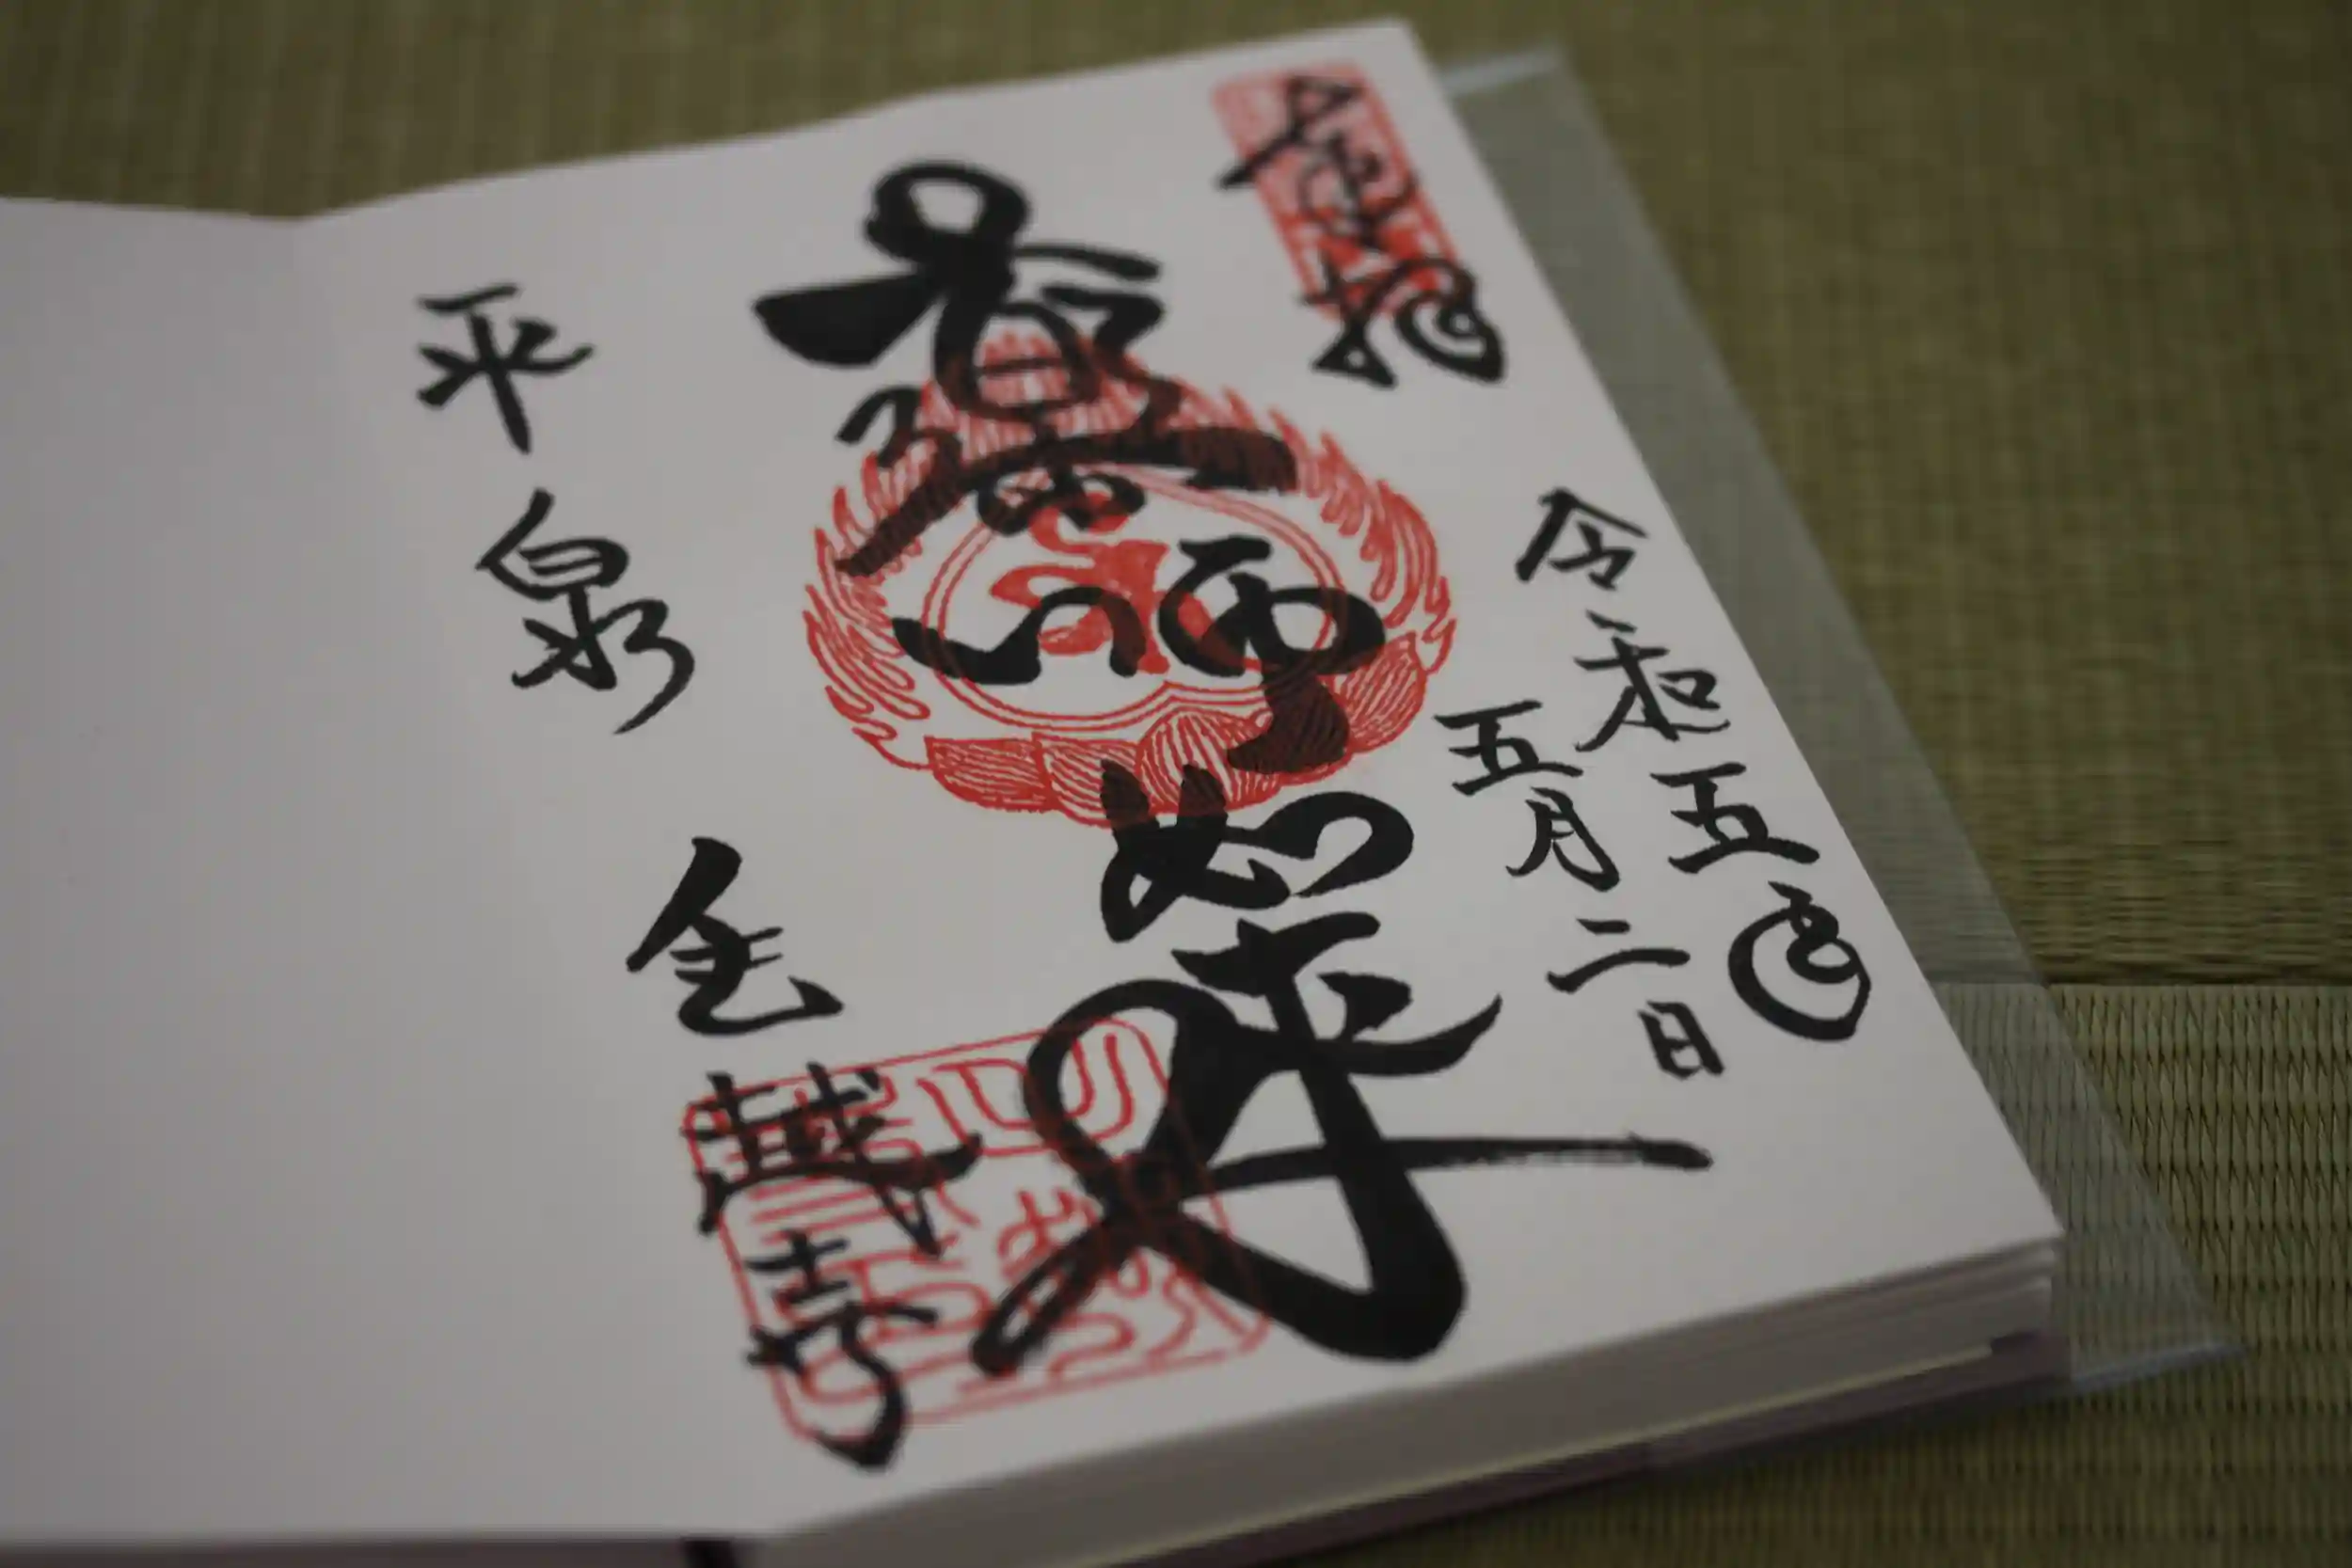 奉拝
令和五年
五月二日
薬師如来
平泉 金鶏寺